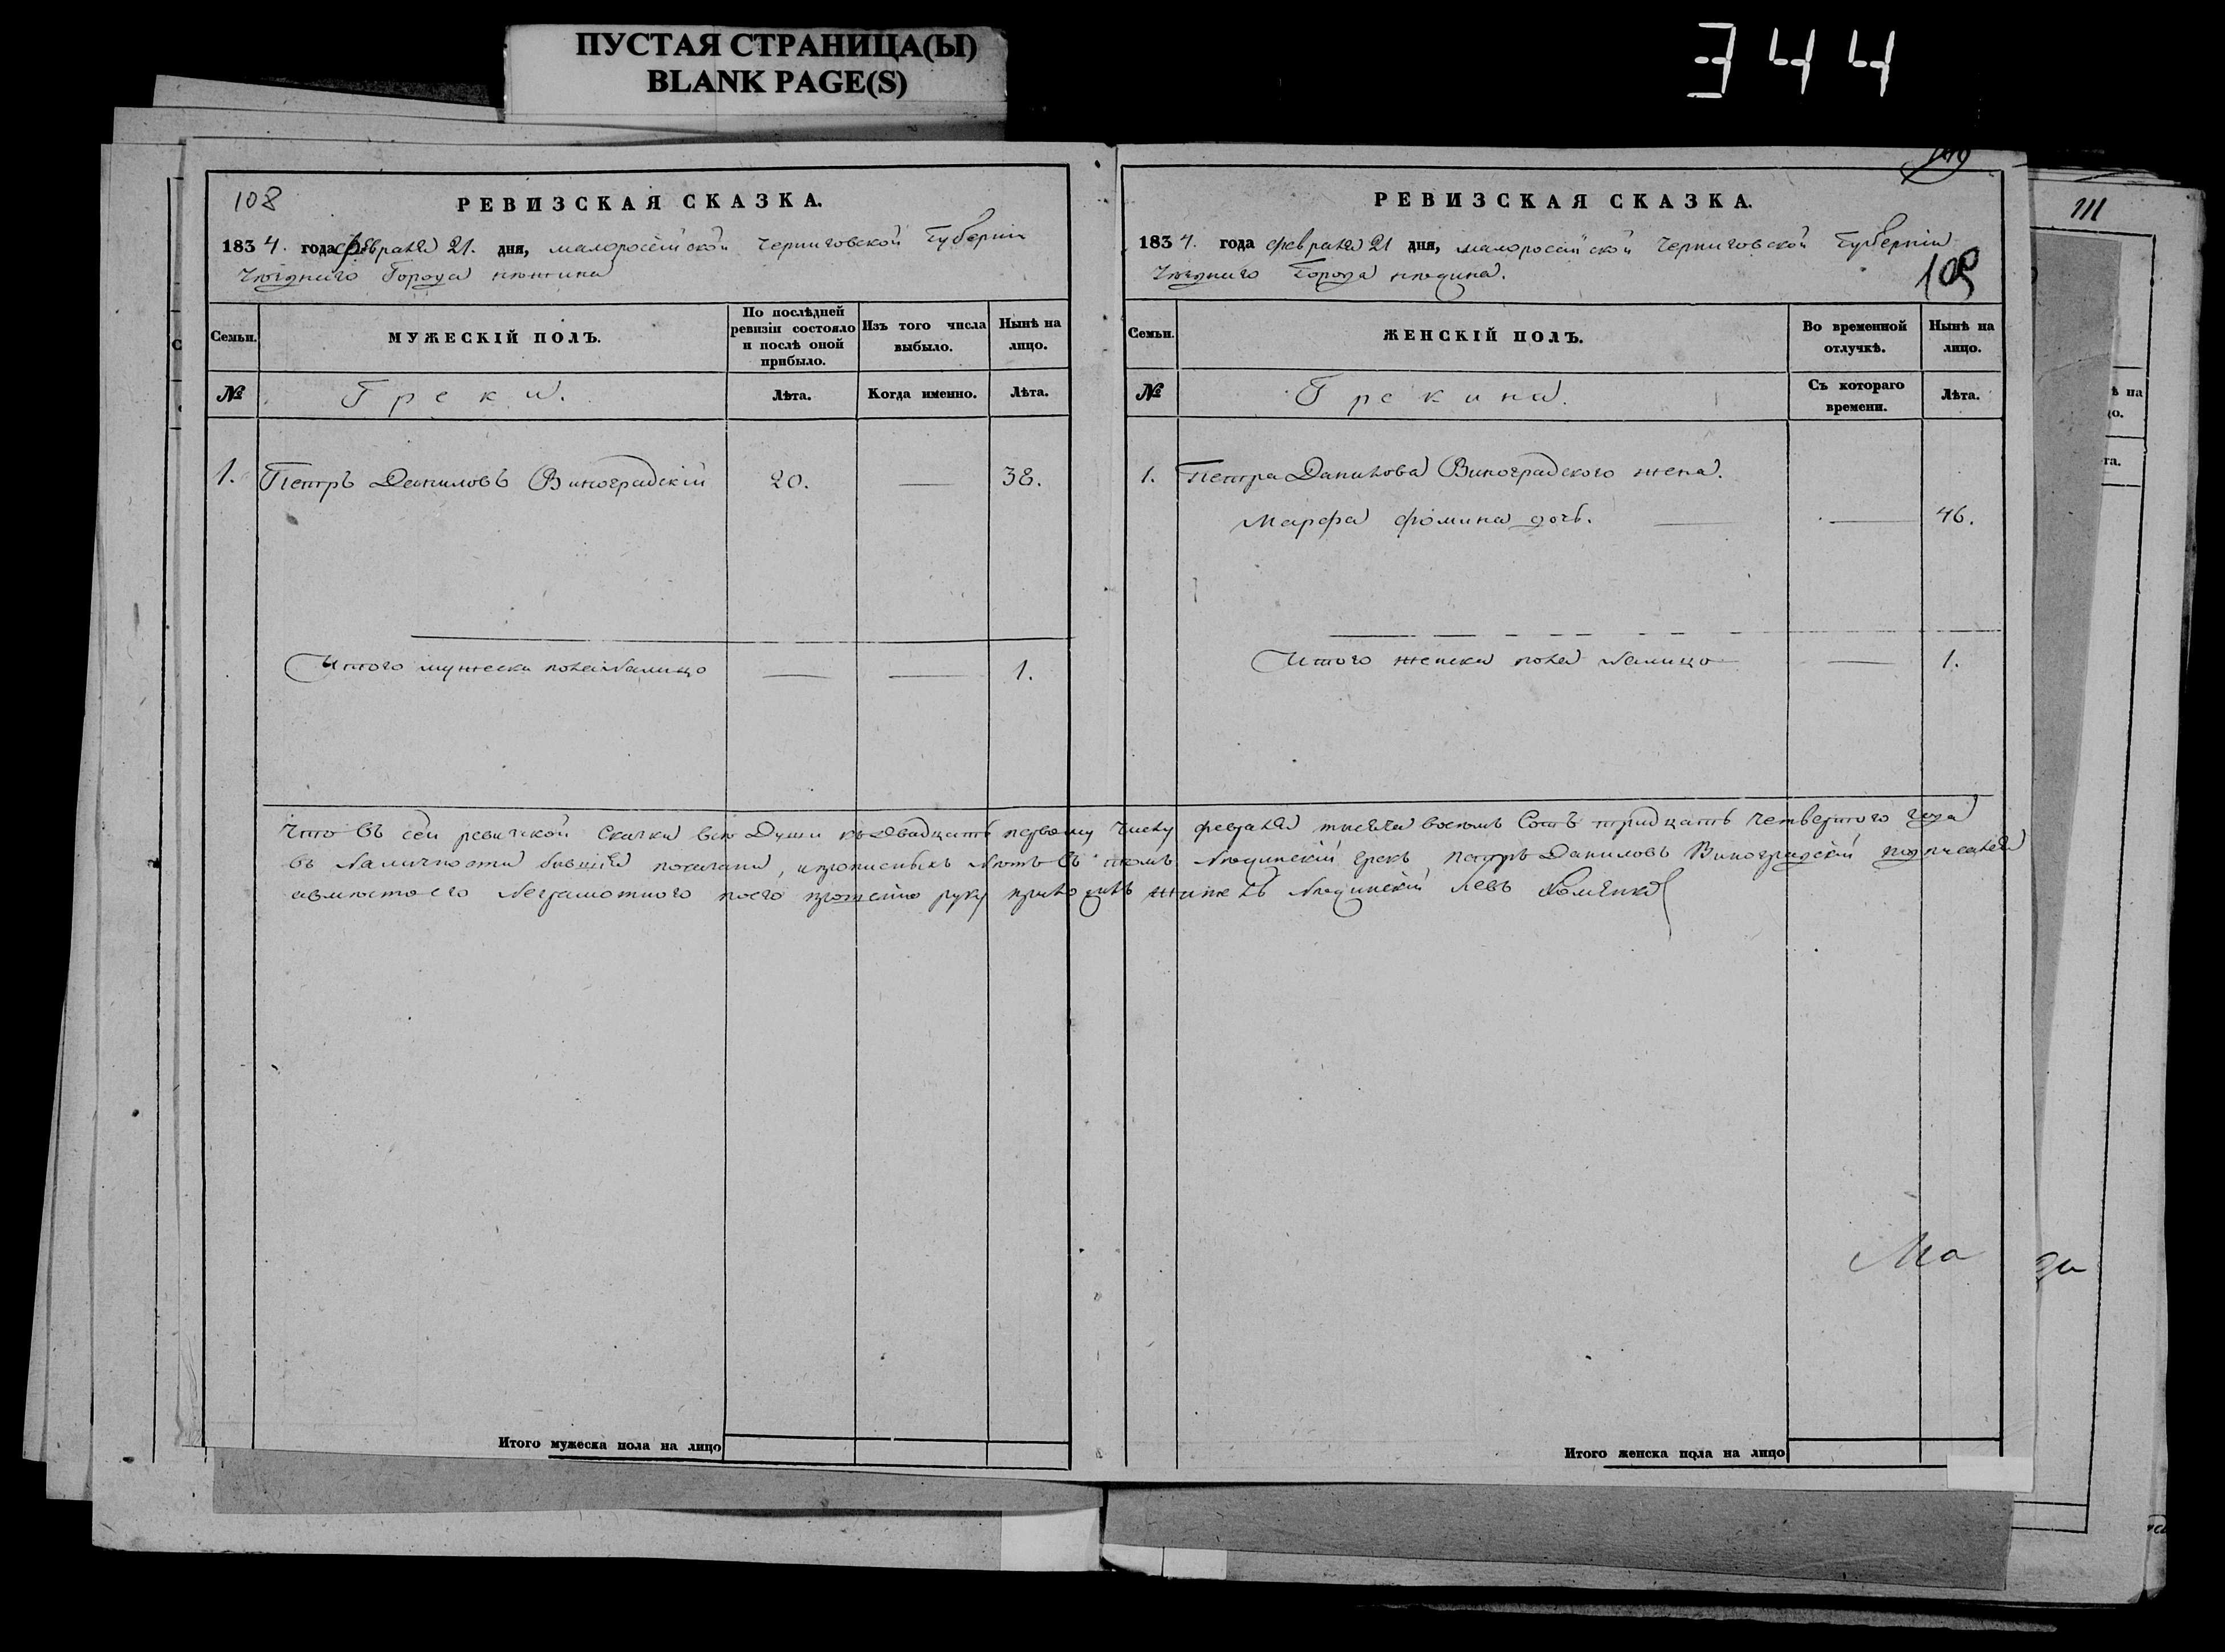 ПУСТАЯ СТРАНИЦА(Ы)
BLANK PAGE(S)
344
108
РЕВИЗСКАЯ СКАЗКА.
1834. года февраля 21. дня, малоросейской Черниговской Губернии
Города
Семьи.
МУЖЕСКІЙ ПОЛЪ.
По послѣдней ревизіи состояло и послѣ оной прибыло.
Изъ того числа выбыло.
Нынѣ на лицо.
№
Греки.
Лѣта.
Когда именно.
Лѣта.
1. Петръ Даниловъ Виноградскій 20. — 38.
Итого мужеска пола налицо — — 1.
Итого мужеска пола на лицо
РЕВИЗСКАЯ СКАЗКА.
1834. года февраля 21 дня, малоросейской Черниговской Губерніи
Города
109
Семьи.
ЖЕНСКІЙ ПОЛЪ.
Во временной отлучкѣ.
Нынѣ на лицо.
№
Съ котораго времени.
Лѣта.
1. Петра Данилова Виноградского жена.
Марфа Фомина дочь. — — 46.
Итого женска пола налицо — 1.
Что въ сей ревизской Сказки все Души къ двадцать первому числу февраля тысяча восемь Сотъ тридцать четвертого года
въ наличности бывшія показани, и прописныхъ нетъ въ томъ грекъ Петръ Даниловъ Виноградскій подписался
а вместо его неграмотного по его прошению руку приложилъ Левъ
Ма
Итого женска пола на лицо
111